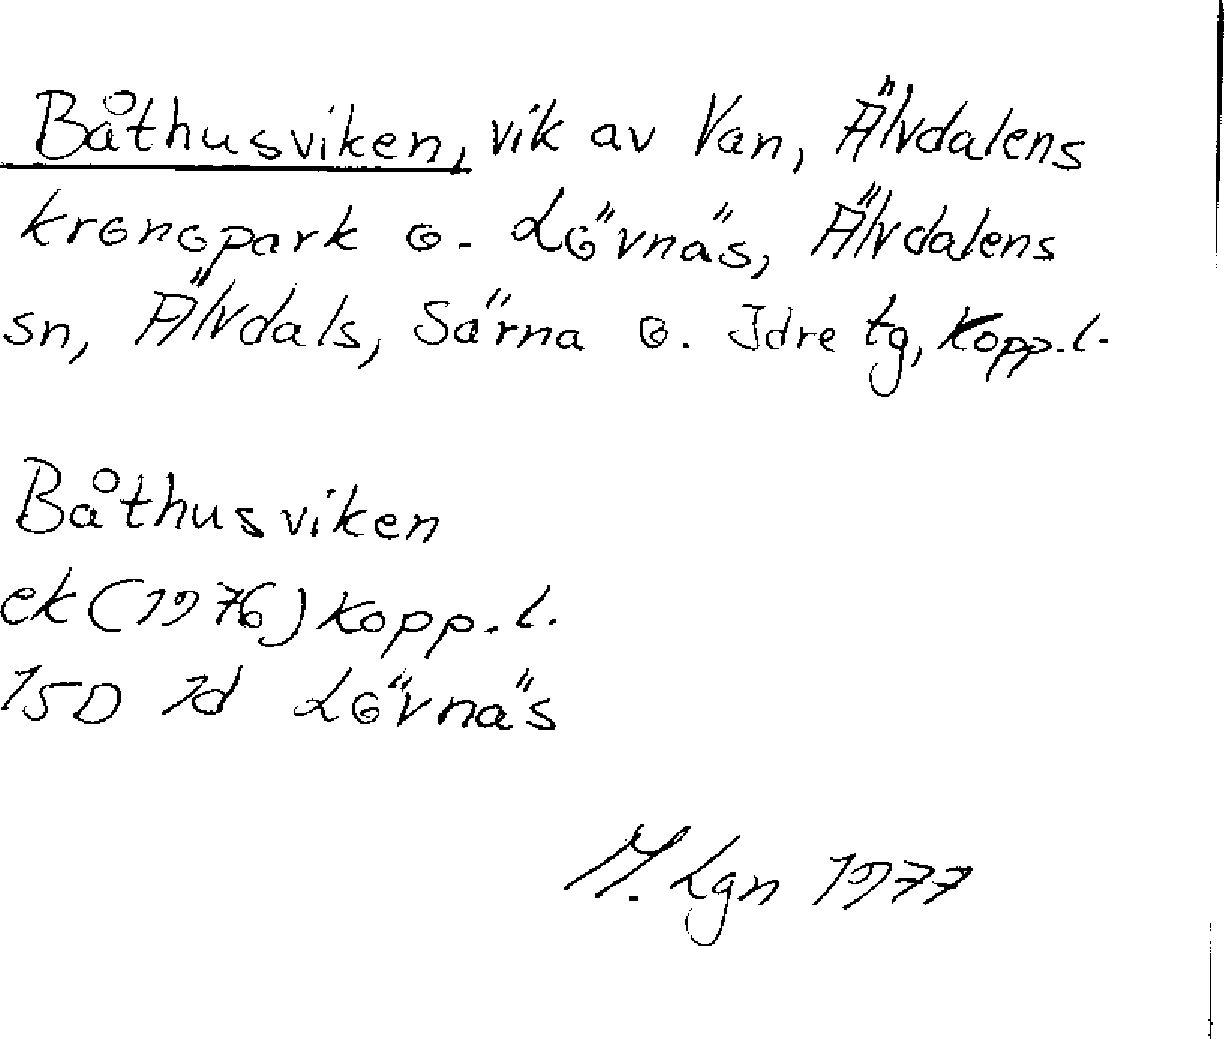 Båthusviken, vik av Van, Älvdalens
kronopark o. Lövnäs, Älvdalens
sn, Älvdals, Särna o. Idre tg, Kopp. l.
Båthusviken
ek (1976) Kopp. l.
15D 1d Lövnäs
M. Lgn 1977